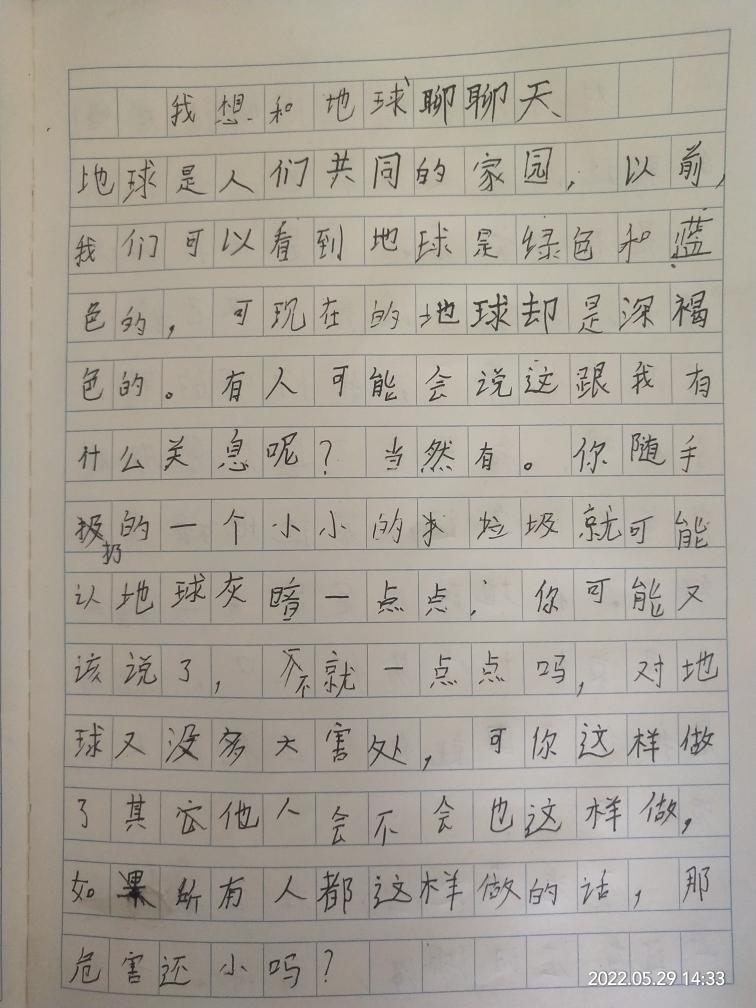 我想和地球聊聊天
地球是人们共同的家园，以前，
我们可以看到地球是绿色和蓝
色的，可现在的地球却是深褐
色的。有人可能会说这跟我有
什么关息呢？当然有。你随手
扔的一个小小的垃圾就可能
认地球灰暗一点点，你可能又
该说了，不就一点点吗，对地
球又没多大害处，可你这样做
了其它他人会不会也这样做，
如果所有人都这样做的话，那
危害还小吗？
2022.05.29 14:33